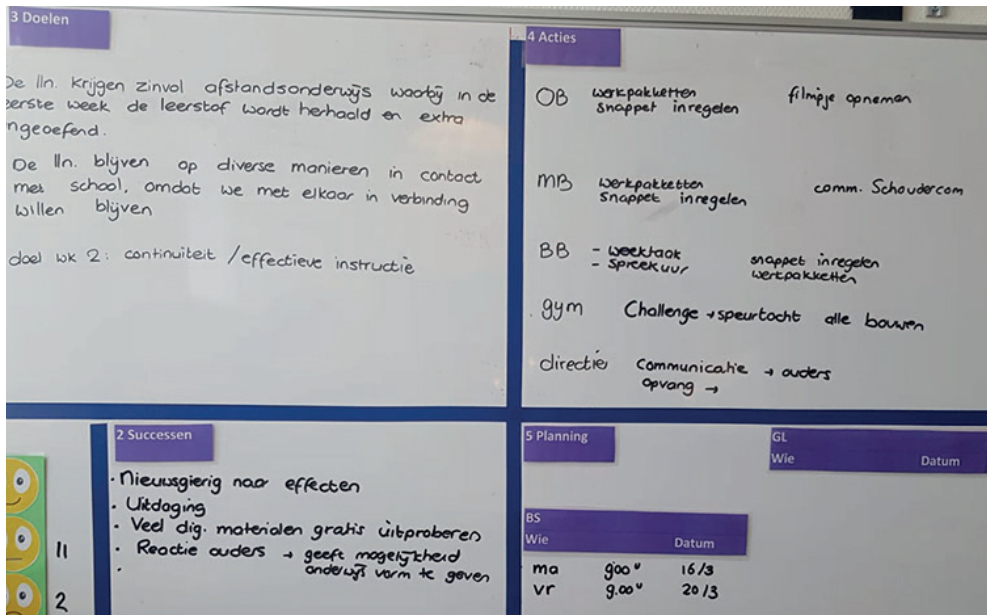 3 Doelen
De lln. krijgen zinvol afstandsonderwijs waarbij in de
eerste week de leerstof wordt herhaald en extra
ngeoefend.
De lln. blijven op diverse manieren in contact
met school, omdat we met elkaar in verbinding
willen blijven
doel wk 2: continuiteit / effectieve instructie
4 Acties
OB werkpakketten filmpje opnemen
snappet inregelen
MB werkpakketten comm. Schoudercom
Snappet inregelen
BB - weektaak snappet inregelen
- spreekuur werkpakketten
gym Challenge → speurtocht alle bouwen
directie Communicatie → ouders
opvang →
2 Successen
· Nieuwsgierig naar effecten
· Uitdaging
· Veel dig. materialen gratis uitproberen
· Reactie ouders → geeft mogelijkheid
onderwijs vorm te geven
·
11
2
5 Planning
GL
Wie Datum
BS
Wie Datum
ma 9.00 u 16/3
vr 9.00 u 20/3